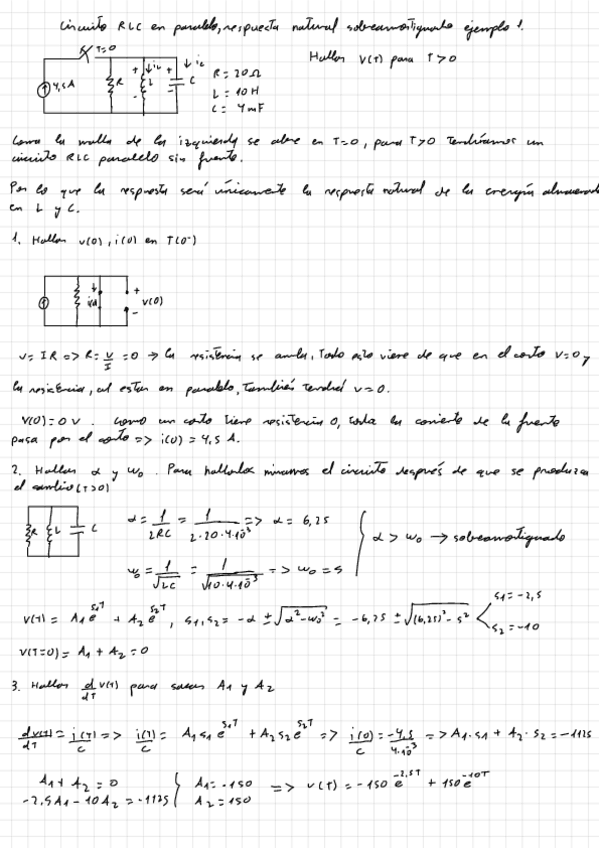 Circuito RLC en paralelo, respuesta natural sobreamortiguado ejemplo 1.
T=0
Hallar V(T) para T>0
4,5A R iL L iC C
R = 20Ω
L = 10H
C = 4mF
Como la malla de la izquierda se abre en T=0, para T>0 Tendríamos un
circuito RLC paralelo sin fuente.
Por lo que la respuesta será únicamente la respuesta natural de la energía almacenada
en L y C.
1. Hallar v(0), i(0) en T(0⁻)
+
v(0)
-
v = IR => R = v/I = 0 → la resistencia se anula, Todo esto viene de que en el corto v=0 y
la resistencia, al estar en paralelo, También Tendrá v=0.
V(0)=0 v. Como un corto Tiene resistencia 0, toda la corriente de la fuente
pasa por el corto => i(0) = 4,5 A.
2. Hallar α y w₀. Para hallarlos miramos el circuito después de que se produzca
el cambio (T>0)
R L C
α = 1/2RC = 1/2·20·4·10⁻³ => α = 6,25
α > w₀ → sobreamortiguado
w₀ = 1/√LC = 1/√10·4·10⁻³ => w₀ = 5
V(T) = A₁e^S₁T + A₂e^S₂T, S₁,S₂ = -α ± √α²-w₀² = -6,25 ± √(6,25)²-5²
S₁=-2,5
S₂=-10
V(T=0) = A₁ + A₂ = 0
3. Hallar d/dT V(T) para sacar A₁ y A₂
dV(T)/dT = i(T)/C => i(T)/C = A₁S₁e^S₁T + A₂S₂e^S₂T => i(0)/C = -4,5/4·10⁻³ => A₁·S₁ + A₂·S₂ = -1125
A₁ + A₂ = 0
-2,5A₁ - 10A₂ = -1125
A₁ = -150
A₂ = 150
=> V(T) = -150e^-2,5T + 150e^-10T